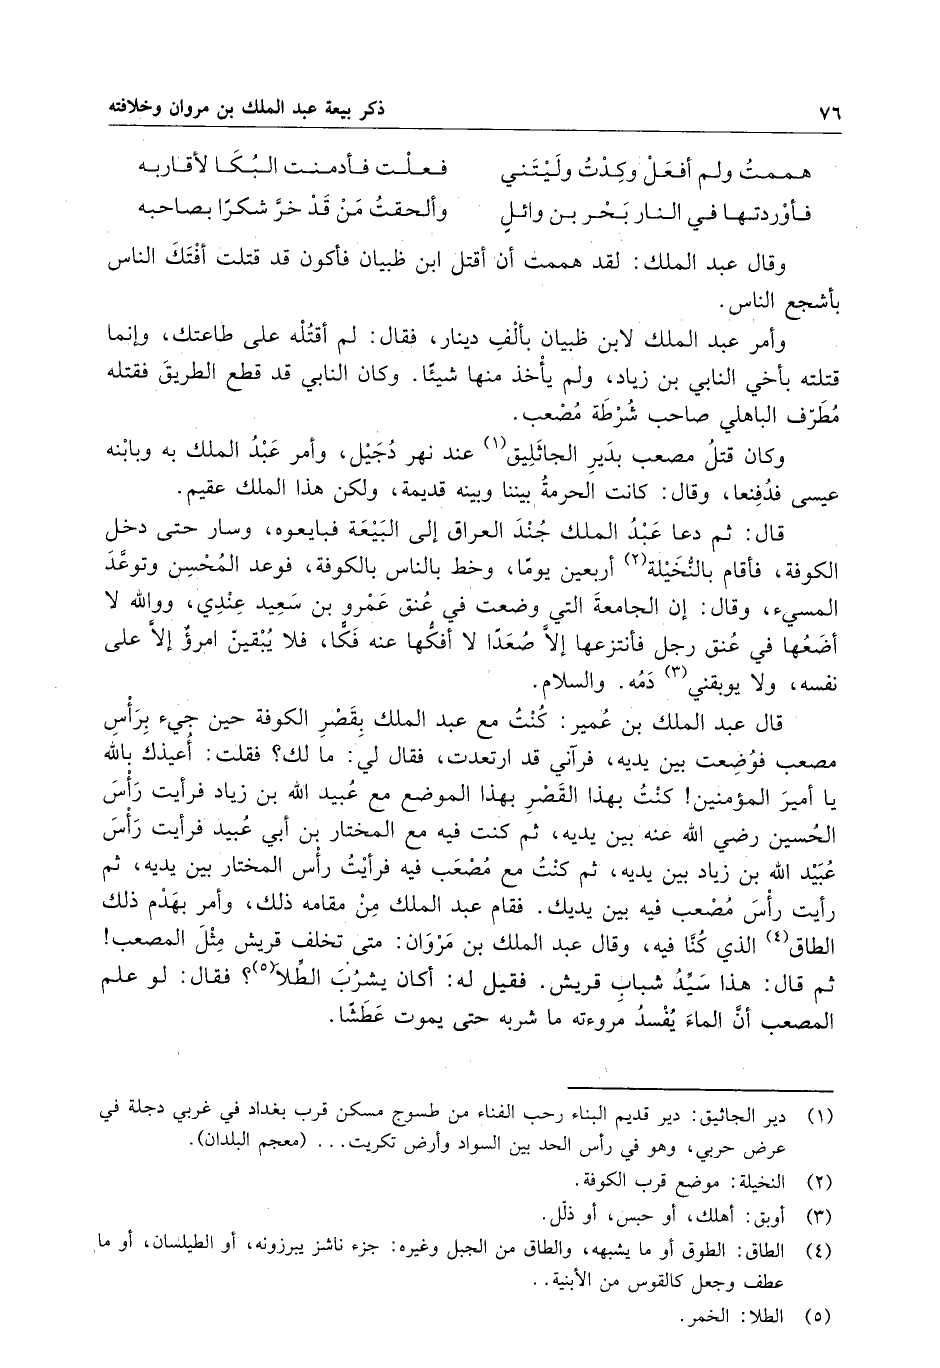 ٧٦ ذكر بيعة عبد الملك بن مروان وخلافته
هممتُ ولم أفعَلْ وكِدْتُ ولَيْتَني فعلْت فأدمنت البُكَا لأقاربه
فأوْردتها في النار بَكْر بن وائلٍ وألحقتُ مَنْ قَدْ خرَّ شكرًا بصاحبه
وقال عبد الملك: لقد هممت أن أقتل ابن ظبيان فأكون قد قتلت أفْتَكَ الناس
بأشجع الناس.
وأمر عبد الملك لابن ظبيان بألْفِ دينار، فقال: لم أقتُلْه على طاعتك، وإنما
قتلته بأخي النابي بن زياد، ولم يأخذ منها شيئًا. وكان النابي قد قطع الطريقَ فقتله
مُطَرّف الباهلي صاحب شُرْطَة مُصْعب.
وكان قتلُ مصعب بدَيرِ الجاثَلِيق(١) عند نهر دُجَيْل، وأمر عَبْدُ الملك به وبابْنه
عيسى فدُفِنعا، وقال: كانت الحرمةُ بيننا وبينه قديمة، ولكن هذا الملك عقيم.
قال: ثم دعا عَبْدُ الملك جُنْدَ العراق إلى البَيْعَة فبايعوه، وسار حتى دخل
الكوفة، فأقام بالنُّخَيْلة(٢) أربعين يومًا، وخط بالناس بالكوفة، فوعد المُحْسِن وتوعَّدَ
المسيء، وقال: إن الجامعةَ التي وضعت في عُنق عَمْرو بن سَعِيد عِنْدِي، ووالله لا
أضَعُها في عنق رجل فأنتزعها إلاَّ صُعَدًا لا أفكُّها عنه فَكًّا، فلا يُبْقينّ امرؤٌ إلاَّ على
نفسه، ولا يوبقني(٣) دَمُه. والسلام.
قال عبد الملك بن عمير: كُنْتُ مع عبد الملك بِقَصْرِ الكوفة حين جِيء بِرَأْسِ
مصعب فوُضِعت بين يديه، فرآني قد ارتعدت، فقال لي: ما لك؟ فقلت: أُعيذك بالله
يا أميرَ المؤمنين! كنْتُ بهذا القَصْرِ بهذا الموضع مع عُبيد الله بن زياد فرأيت رَأْسَ
الحُسين رضي الله عنه بين يديه، ثم كنت فيه مع المختار بن أبي عُبيد فرأيت رَأْسَ
عُبَيْد الله بن زياد بين يديه، ثم كنْتُ مع مُصْعَب فيه فرأيْتُ رأس المختار بين يديه، ثم
رأيت رأسَ مُصْعب فيه بين يديك. فقام عبد الملك مِنْ مقامه ذلك، وأمر بهَدْم ذلك
الطاق(٤) الذي كُنَّا فيه، وقال عبد الملك بن مَرْوَان: متى تخلف قريش مِثْلَ المصعب!
ثم قال: هذا سَيِّدُ شبابِ قريش. فقيل له: أكان يشرُبَ الطِّلا(٥)؟ فقال: لو علم
المصعب أنَّ الماءَ يُفْسدُ مروءته ما شربه حتى يموت عَطَشًا.
(١) دير الجاثيق: دير قديم البناء رحب الفناء من طسوج مسكن قرب بغداد في غربي دجلة في
عرض حربي، وهو في رأس الحد بين السواد وأرض تكريت... (معجم البلدان).
(٢) النخيلة: موضع قرب الكوفة.
(٣) أوبق: أهلك، أو حبس، أو ذلّل.
(٤) الطاق: الطوق أو ما يشبهه، والطاق من الجبل وغيره: جزء ناشز يبرزونه، أو الطيلسان، أو ما
عطف وجعل كالقوس من الأبنية..
(٥) الطلا: الخمر.